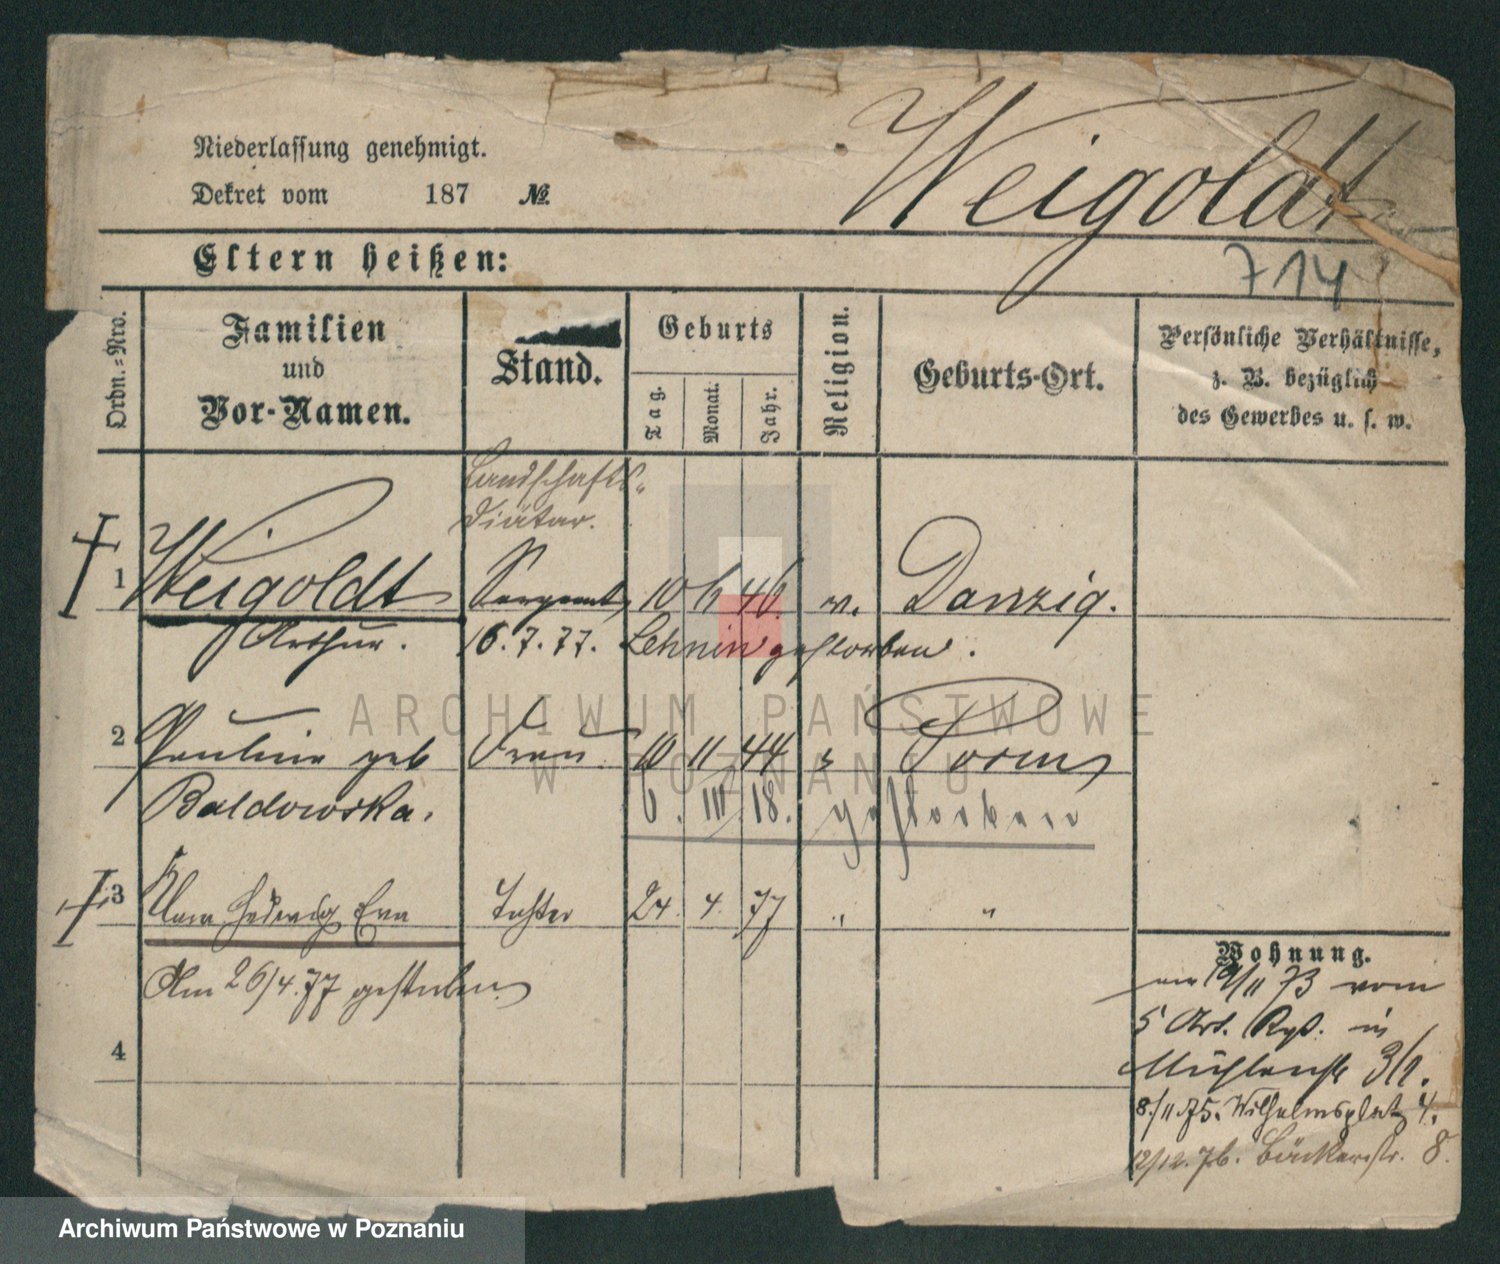 Weigoldt
Niederlassung genehmigt.
Dekret vom 187 №
714
Eltern heißen:
Ordn.-Nro.
Familien
und
Vor-Namen.
Stand.
Geburts
Tag.
Monat.
Jahr.
Religion.
Geburts-Ort.
Persönliche Verhältnisse,
z. B. bezüglich
des Gewerbes u. s. w.
Landschafts-
Diätar.
1 Weigoldt Sergeant 10 6 46. Danzig.
Arthur. 16.7.77. Lehnin gestorben.
ARCHIWUM PAŃSTWOWE
W POZNANIU
2 Pauline geb Frau 10 11 44
Baldowska. 6. III 18. gestorben
3 Clara Hedwig Eva Tochter 24. 4. 77 " "
Am 26/4.77 gestorben
4
Wohnung.
73 vom
5 Art. Rgt. in
Mühlenstr
8./11.75. Wilhelmsplatz 4.
12/12.76. Bäckerstr. 8.
Archiwum Państwowe w Poznaniu